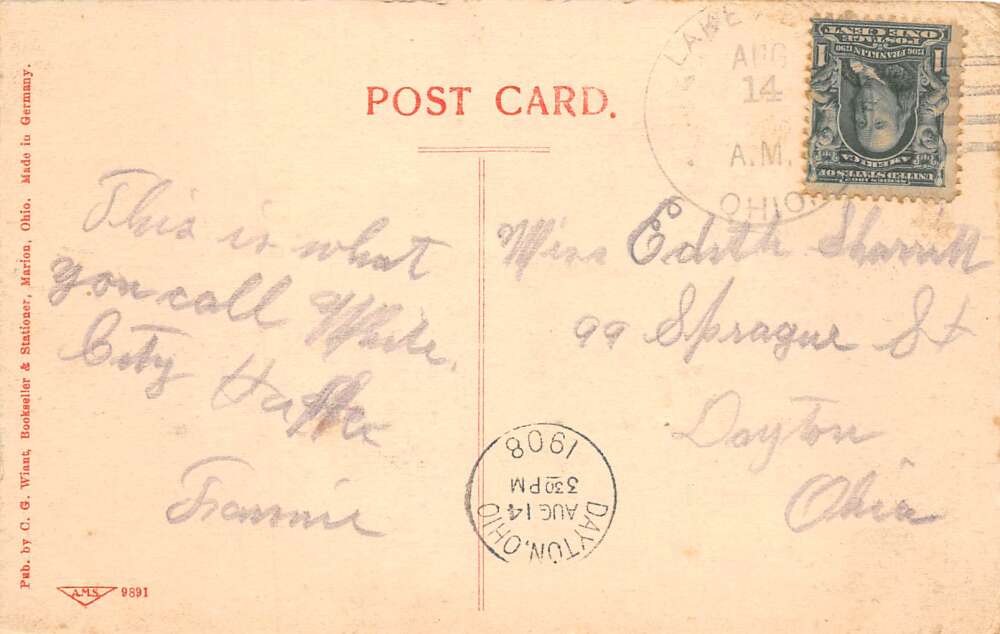 POST CARD.
This is what
you call White
City
Fannie
Miss Edith Sherritt
99 Sprague St
Dayton
Ohio
LAKE
AUG
14
A.M.
OHIO
SERIES 1902
UNITED STATES OF
AMERICA
1706 FRANKLIN 1790
POSTAGE
ONE CENT
1 1
DAYTON, OHIO
AUG 14
330 PM
1908
Pub. by C. G. Wiant, Bookseller & Stationer, Marion, Ohio. Made in Germany.
A.M.S. 9891